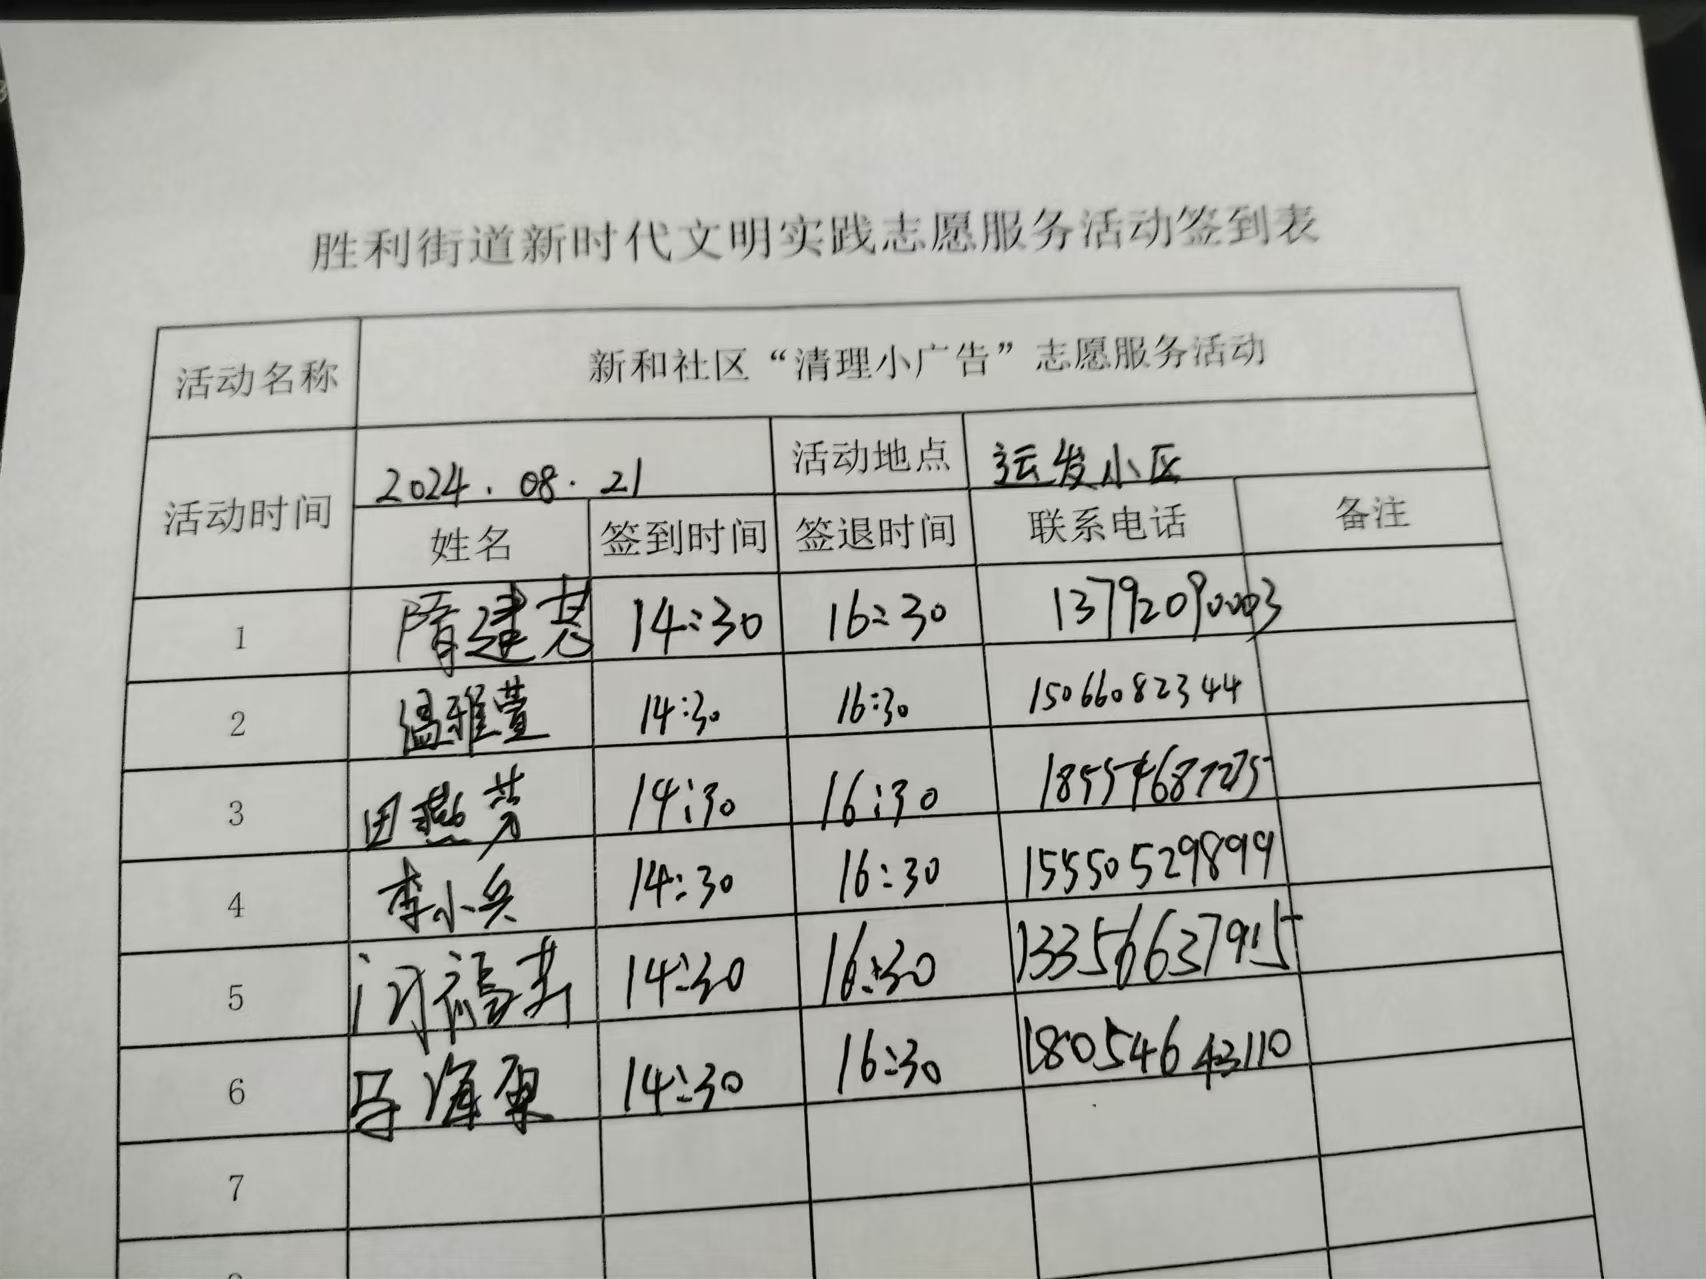 胜利街道新时代文明实践志愿服务活动签到表
活动名称 新和社区“清理小广告”志愿服务活动
活动时间 2024.08.21 活动地点 运发小区
姓名 签到时间 签退时间 联系电话 备注
1 隋建 14:30 16:30 13792090003
2 温雅萱 14:30 16:30 15066082344
3 田燕芳 14:30 16:30 18554687275
4 李小兵 14:30 16:30 15550529899
5 门福 14:30 16:30 13356637915
6 马海 14:30 16:30 18054643110
7